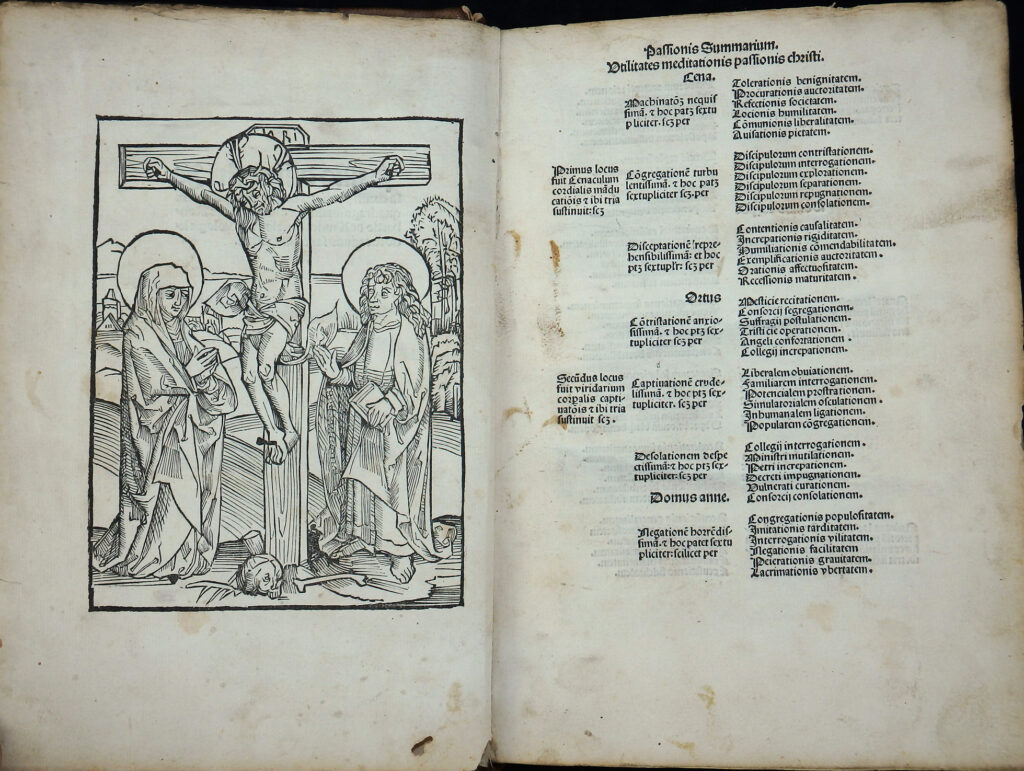 INRI
Passionis Summarium.
Utilitates meditationis passionis christi.
Cena.
Primus locus
fuit Cenaculum
cordialis mādu
catiōis ⁊ ibi tria
sustinuit: scꝫ
Machinatōꝫ nequis
simā. ⁊ hoc patꝫ sextu
pliciter. scꝫ per
Tolerationis benignitatem.
Procurationis auctoritatem.
Refectionis societatem.
Locionis humilitatem.
Cōmunionis liberalitatem.
Auisationis pietatem.
Cōgregationē turbu
lentissimā. ⁊ hoc patꝫ
sextupliciter scꝫ. per
Discipulorum contristationem.
Discipulorum interrogationem.
Discipulorum explorationem.
Discipulorum separationem.
Discipulorum repugnationem.
Discipulorum consolationem.
Disceptationē repre-
hensibilissimā: et hoc
ptꝫ sextuplr: scꝫ per
Contentionis causalitatem.
Increpationis rigiditatem.
Humiliationis comendabilitatem.
Exemplificationis auctoritatem.
Orationis affectuositatem.
Recessionis maturitatem.
Ortus
Secūdus locus
fuit viridarium
corpalis capti-
uatōis ⁊ ibi tria
sustinuit scꝫ.
Cōtristationē anxio-
sissimā. ⁊ hoc ptꝫ sex-
tupliciter scꝫ per
Mesticie recitationem.
Consorcij segregationem.
Suffragij postulationem.
Tristicie operationem.
Angeli confortationem.
Collegij increpationem.
Captiuationē crude-
lissimā. ⁊ hoc ptꝫ sex-
tupliciter. scꝫ per
Liberalem obuiationem.
Familiarem interrogationem.
Potencialem prostrationem.
Simulatorialem osculationem.
Inhumanalem ligationem.
Popularem cōgregationem.
Desolationem despe
ctissimā: ⁊ hoc ptꝫ sex-
tupliciter: scꝫ per
Collegij interrogationem.
Ministri mutilationem.
Petri increpationem.
Decreti impugnationem.
Vulnerati curationem.
Consorcij consolationem.
Domus anne.
Negationē horrēdis-
simā. ⁊ hoc patet sextu
pliciter: scilicet per
Congregationis populositatem.
Imitationis tarditatem.
Interrogationis vilitatem.
Negationis facilitatem
Peierationis grauitatem.
Lacrimationis vbertatem.